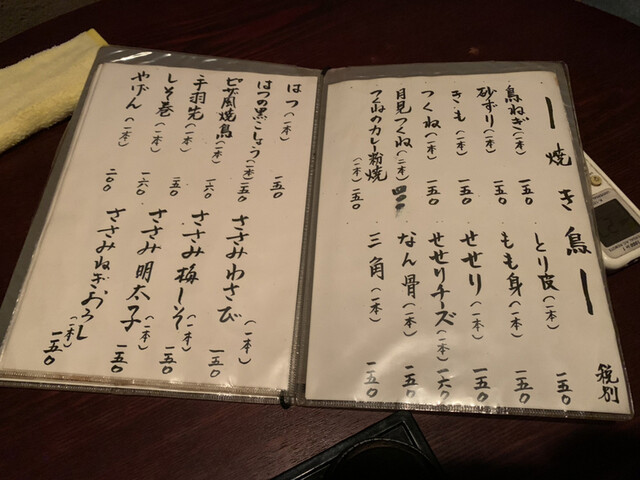 焼き鳥
税別
鳥ねぎ(一本) 一五〇
砂ずり(一本) 一五〇
きも(一本) 一五〇
つくね(一本) 一五〇
月見つくね(二本)
つくねのカレー粉焼(一本) 一五〇
とり皮(一本) 一五〇
もも身(一本) 一五〇
せせり(一本) 一五〇
せせりチーズ(一本) 一六〇
なん骨(一本) 一五〇
三角(一本) 一五〇
はつ(一本) 一五〇
はつの黒こしょう(一本) 一五〇
ピザ風焼鳥(一本) 一六〇
手羽先(一本) 一五〇
しそ巻(一本) 一六〇
やげん(一本) 二〇〇
ささみわさび(一本) 一五〇
ささみ梅しそ(一本) 一五〇
ささみ明太子(一本) 一五〇
ささみねぎおろし(一本) 一五〇